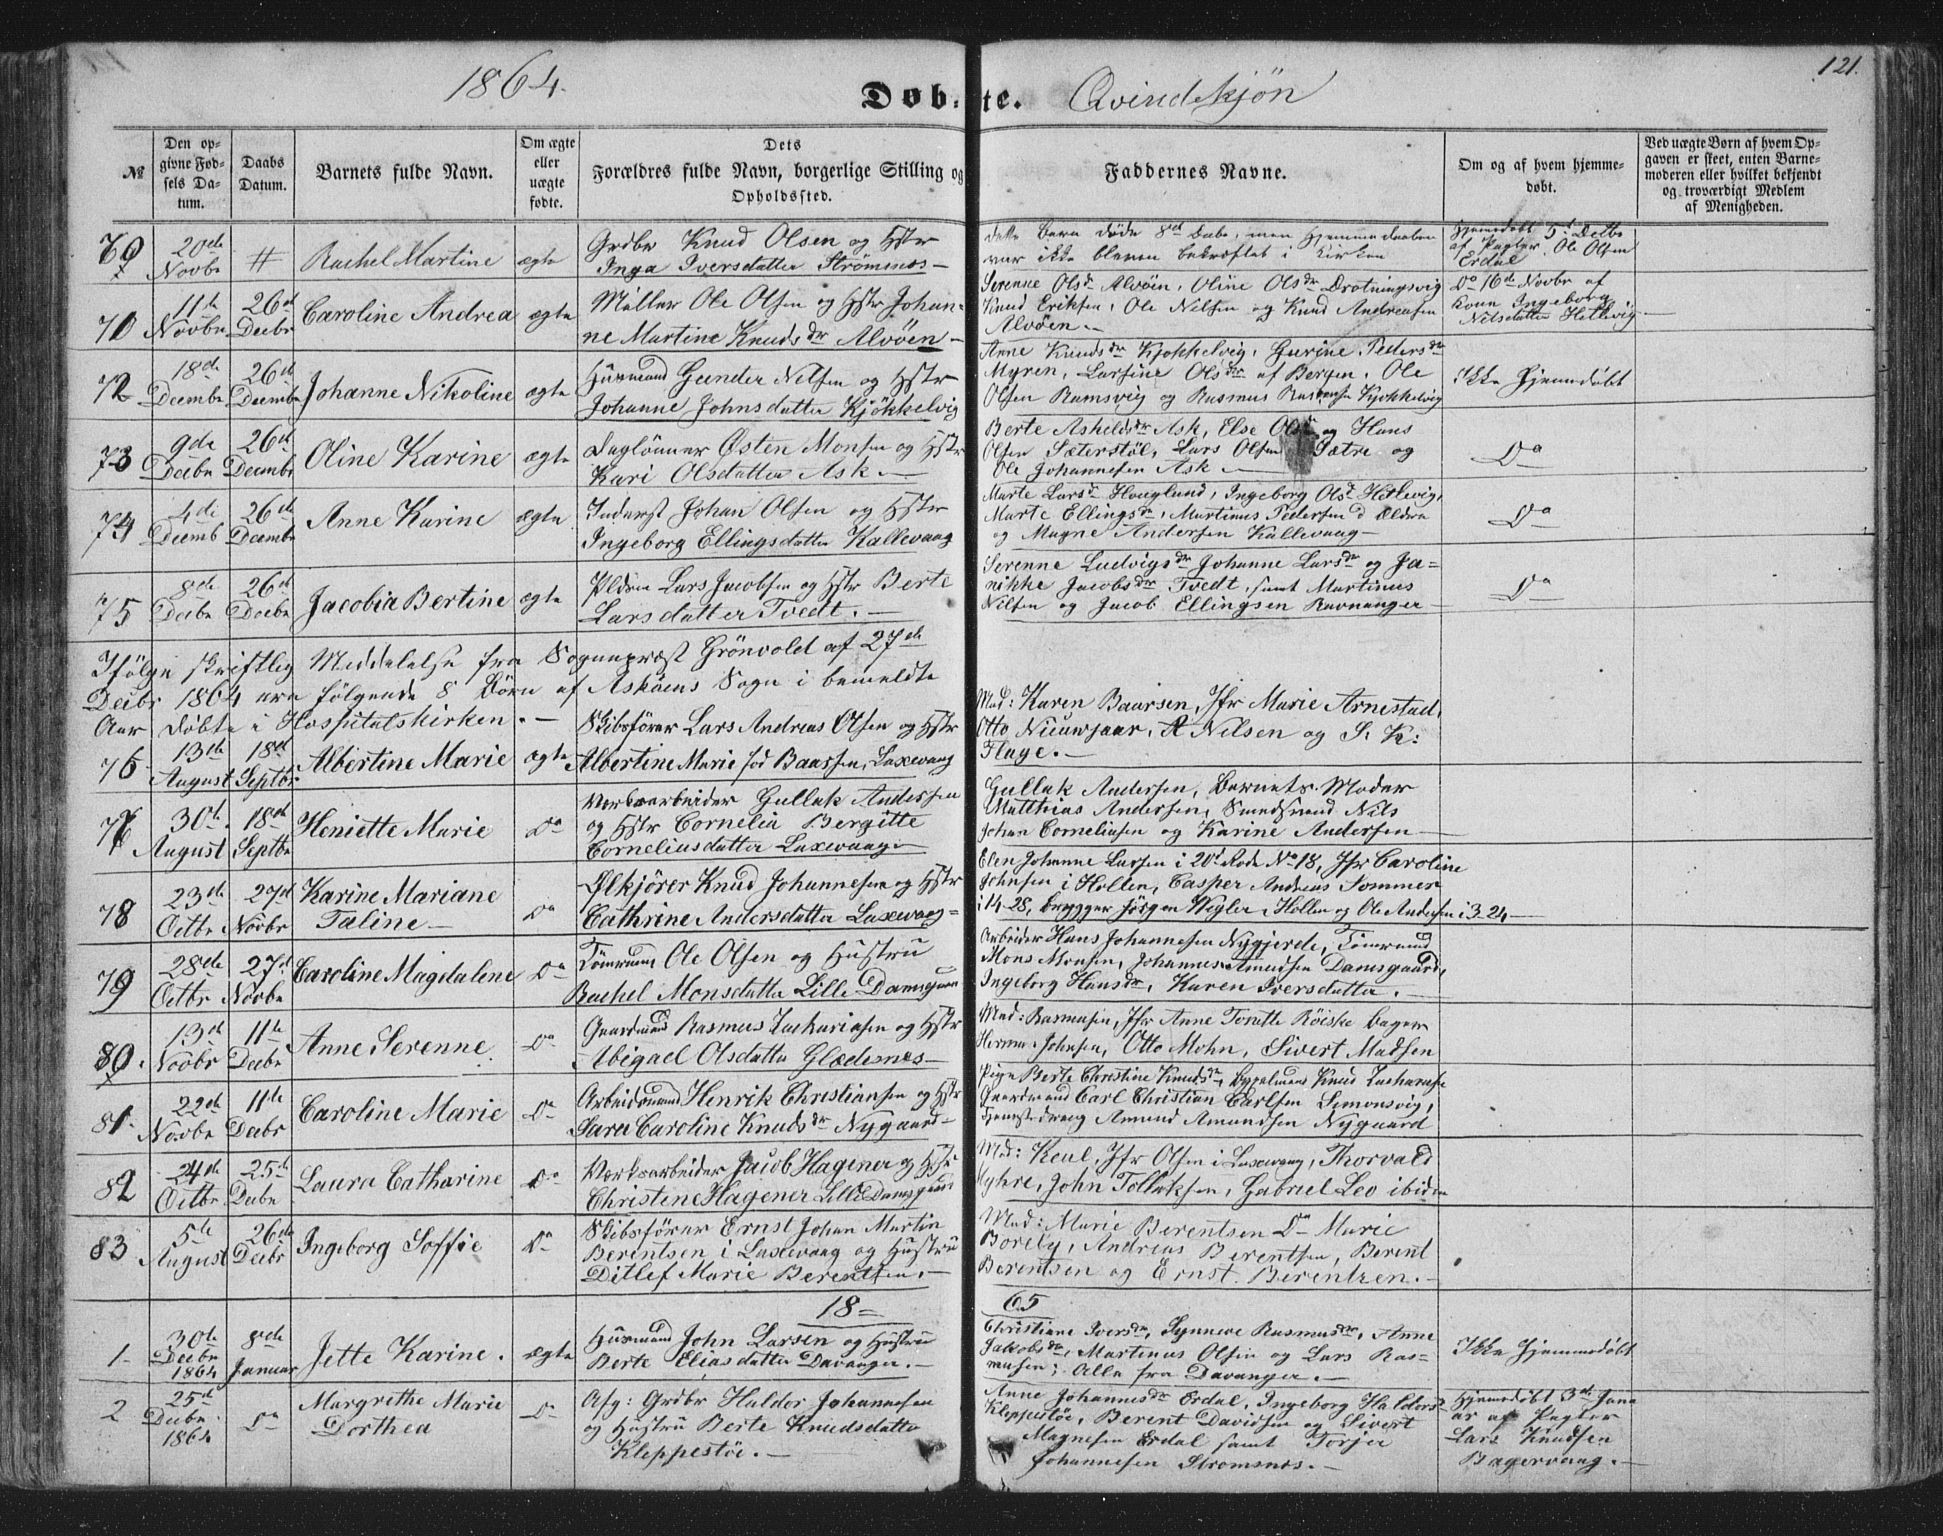 1864.
Døb-te. Qvindekjøn
121.
№
Den op-
givne Fød-
sels Da-
tum.
Daabs
Datum.
Barnets fulde Navn.
Om ægte
eller
uægte
fødte.
Dets
Forældres fulde Navn, borgerlige Stilling og
Opholdssted.
Faddernes Navne.
Om og af hvem hjemme-
døbt.
Ved uægte Børn af hvem Op-
gaven er skeet, enten Barne-
moderen eller hvilket bekjendt
og troværdigt Medlem
af Menigheden.
20de
Novbr
#
Rachel Martine
ægte
Grdbr Knud Olsen og Hstr
Inga Iversdatter Strömsnes
Dette Barn døde 8de Decbr, men Hjemmedaaben
var ikke bleven bekræftet i Kirken
Hjemmedøbt 5t Decbr
af Pagter Ole Olsen
Erdal
11te
Novbr
26d
Decbr
Caroline Andrea
ægte
Müller Ole Olsen og Hstr Johan-
ne Martine Knudsdr Alvöen
Serenne Olsdr Alvöen, Oline Olsdr Drotningsvig
Knud Eriksen, Ole Nilsen og Knud Andreasen
Alvöen.
Do 16de Novbr af
Kone Ingeborg
Nilsdatter Hetlevig
72
18de
Decembr
26d
Decembr
Johanne Nikoline
ægte
Huusmand Gunder Nilsen og Hstr
Johanne Johnsdatter Kjökkelvig
Anne Knudsdr Kjøkkelvig, Gurine Pedersdr
Myren, Larsine Olsdr af Bergen, Ole
Olsen Ramsvig og Rasmus Rasmusen Kjøkkelvig
Ikke Hjemmedøbt
73
9de
Decbr
26d
Decembr
Oline Karine
ægte
Daglönner Østen Monsen og Hstr
Kari Olsdatter Ask
Berte Askeldsdr Ask, Else Olsdr og Hans
Olsen Sæterstöl, Lars Olsen Sætre og
Ole Johannesen Ask
Do
74
4de
Decemb
26d
Decembr
Anne Karine
ægte
Inderst Johan Olsen og Hstr
Ingeborg Ellingsdatter Kallevaag
Marte Larsdr Hauglund, Ingeborg Olsd Hetlevig,
Marte Ellingsdr, Martinus Pedersen d Ældre
og Magne Andersen Kallevaag
Do
75
8de
Decbr
26d
Decbr
Jacobia Bertine
ægte
Lars Jacobsen og Hstr Berte
Larsdatter Tvedt.
Serenne Ludvigsdr Johanne Larsdr og Ja-
nikke Jacobsdr Tvedt, samt Martinus
Nilsen og Jacob Ellingsen Ravnanger
Do
Ifölge skriftlig Meddelelse fra Sognepræst Grönvold af 27de
Decbr 1864 ere følgende 8 Børn af Askøens Sogn i bemeldte
Aar døbte i Hospitalskirken.
76
13de
August
18d
Septbr
Albertine Marie
ægte
Skibsförer Lars Andreas Olsen og Hstr
Albertine Marie fød Baarsen, Laxevaag
Mad: Karen Baarsen, Jfr Marie Arnestad,
Otto Nieuwjaar, A Nilsen og S. K:
Flage.
30te
August
18d
Septbr
Heniette Marie
Do
Værksarbeider Gullak Andersen
og Hstr Cornelia Bergitte
Corneliusdatter Laxevaag
Gullak Andersen, Barnets Moder
Matthias Andersen, Nils
Johan Corneliusen og Karine Andersen
78
23de
Octbr
27d
Novbr
Karine Mariane
Taline
Do
Ølkjörer Knud Johannesen og Hstr
Cathrine Andersdatter Laxevaag
Elen Johanne Larsen i 20d Rode No 18, Jfr Caroline
Johnsen i Hollen, Casper Andreas Sommer
i 14-28, Brygger Jörgen Wigler Hollen og Ole Andersen i 3-24
79
28de
Octbr
27d
Novbr
Caroline Magdalene
Do
Tömrmd Ole Olsen og Hustru
Rachel Monsdatter Lille Damsgaard
Arbeider Hans Johannesen Nygjerde, Tömrmd
Mons Monsen, Johannes Amundsen Damsgaard,
Ingeborg Hansdr, Karen Iversdatter.
80
13d
Novbr
11te
Decbr
Anne Serenne
Do
Gaardmd Rasmus Zachariasen og Hstr
Abigael Olsdatter Gladesnes
Mad: Rasmusen, Jfr Anne Torette Röiske Bager
Herman Johnsen, Otto Mohn, Sivert Madsen
81
22de
Novbr
11te
Decbr
Caroline Marie
Do
Arbeidsmand Henrik Christiansen og Hstr
Sara Caroline Knudsdr Nygaard
Pige Berte Christine Knudsdr, Knud Zacharias
Gaardmand Carl Christian Carlsen Simonsvig,
Tjenestedreng Amund Amundsen Nygaard
82
24de
Octbr
25de
Decbr
Laura Catharine
Do
Værksarbeider Jacob Hagener og Hstr
Christine Hagener Lille Damsgaard
Mad: Keul, Jfr Olsen i Laxevaag, Thorvald
Myhre, John Tollaksen, Gabriel Leo ibidem
83
5te
August
26de
Decbr
Ingeborg Soffie
Do
Skibsförer Ernst Johan Martin
Berentsen i Laxevaag og Hustru
Ditlef Marie Berentsen.
Mad: Marie Berentsen Do Marie
Borely, Andreas Berentsen, Berent
Berentsen og Ernst Berentzen.
18 65
1
30te
Decbr
1864
8de
Januar
Jette Karine.
ægte
Huusmand John Larsen og Hustru
Berte Eliasdatter Davanger.
Christiane Iversdr, Synneve Rasmusdr, Anne
Jakobsdr, Martinus Olsen og Lars Ras-
musen; Alle fra Davanger.
Ikke Hjemmedøbt
2
25d
Decbr
1864
Do
Margrethe Marie
Dorthea
Do
Afg: Grdbr Haldor Johannesen
og Hustru Berte Knudsdatter
Kleppestöe.
Anne Johannesdr Erdal, Ingeborg Haldorsdr
Kleppestöe, Berent Davidsen og Sivert
Magnesen Erdal samt Torjer
Johannesen Strömsnes.
Hjemmedøbt 3de Janu
ar af Pagter
Lars Knudsen
Bagervaag.